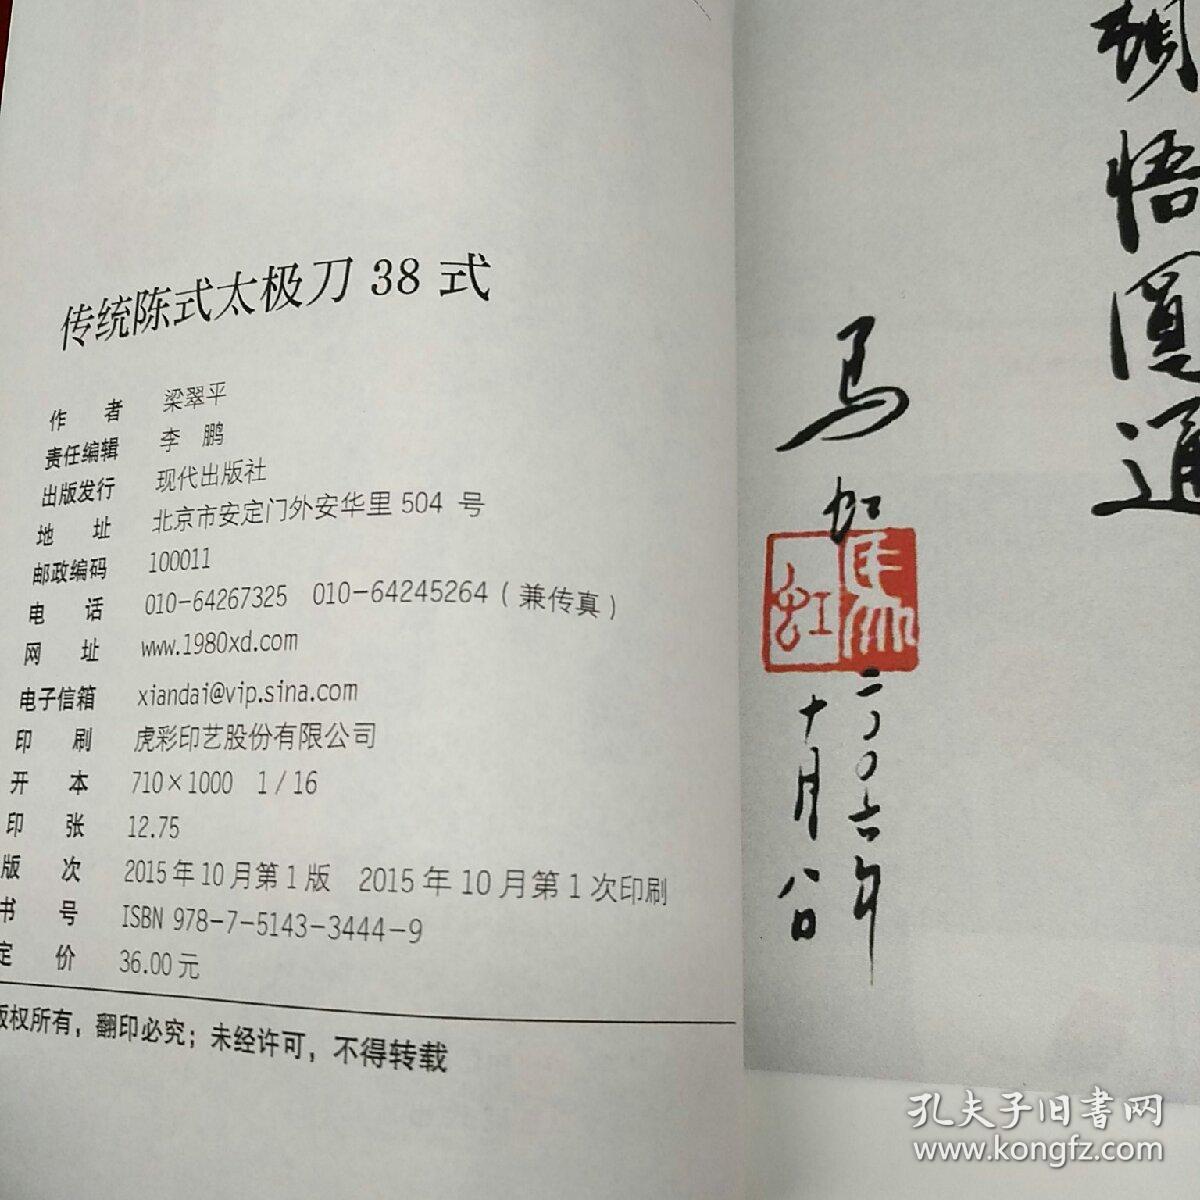 传统陈式太极刀 38 式
作 者 梁翠平
责任编辑 李 鹏
出版发行 现代出版社
地 址 北京市安定门外安华里 504 号
邮政编码 100011
电 话 010-64267325 010-64245264（兼传真）
网 址 www.1980xd.com
电子信箱 xiandai@vip.sina.com
印 刷 虎彩印艺股份有限公司
开 本 710×1000 1/16
印 张 12.75
版 次 2015 年 10 月第 1 版 2015 年 10 月第 1 次印刷
书 号 ISBN 978-7-5143-3444-9
定 价 36.00 元
版权所有，翻印必究；未经许可，不得转载
悟圆通
马虹
马虹
二〇〇六年
十月八日
孔夫子旧书网
www.kongfz.com